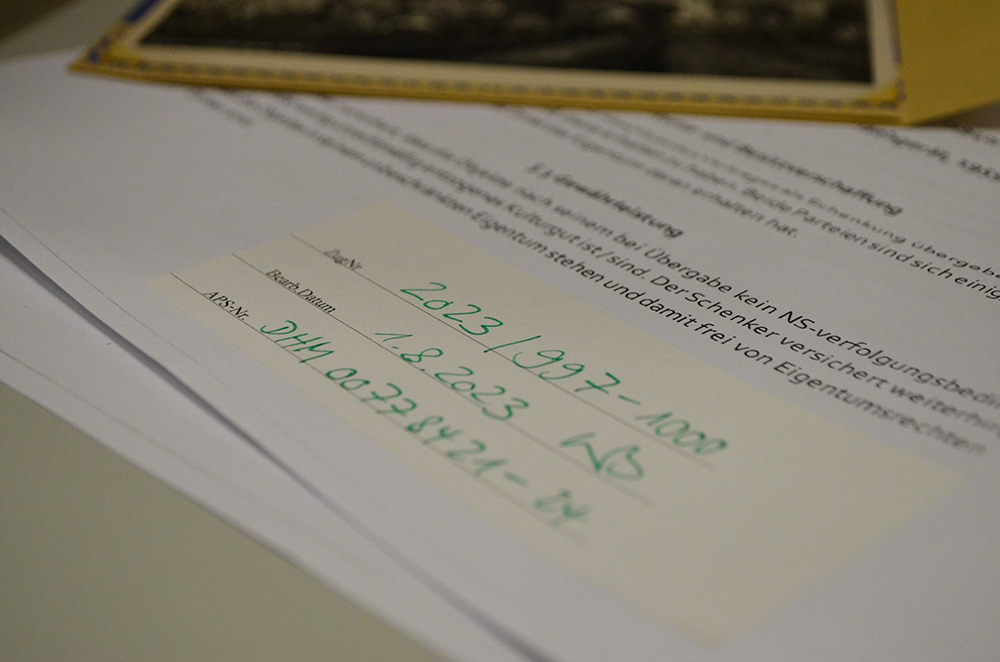 und Besitzverschaffung
als Schenkung übergeben
haben. Beide Parteien sind sich einig
Eigentum daran erhalten hat.
§ 3 Gewährleistung
dass die Objekte nach seinem bei Übergabe kein NS-verfolgungsbedin
entzogenes Kulturgut ist / sind. Der Schenker versichert weiterhin
unbeschränkten Eigentum stehen und damit frei von Eigentumsrechten
ZugNr. 2023/997-1000
Bearb.Datum 1.8.2023 WB
APS-Nr. DHM 00778421-24